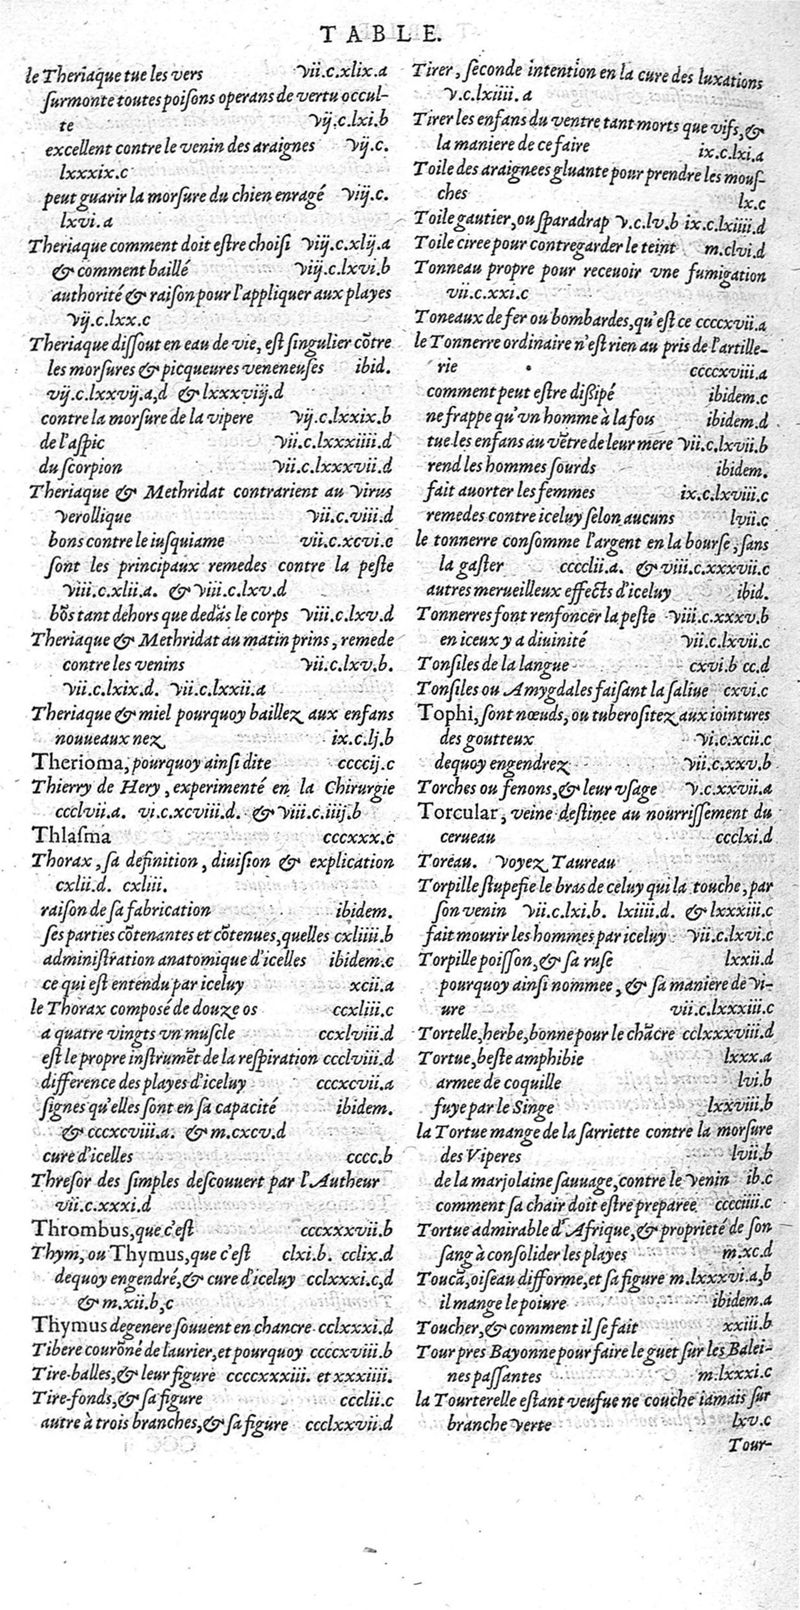 TABLE.
le Theriaque tue les vers vii.c.xlix.a
surmonte toutes poisons operans de vertu occul-
te vij.c.lxi.b
excellent contre le venin des araignes vij.c.
lxxxix.c
peut guarir la morsure du chien enragé viij.c.
lxvi.a
Theriaque comment doit estre choisi viij.c.xlij.a
& comment baillé viij.c.lxvi.b
authorité & raison pour l'appliquer aux playes
vij.c.lxx.c
Theriaque dissout en eau de vie, est singulier cõtre
les morsures & picqueures veneneuses ibid.
vij.c.lxxvij.a,d & lxxxviij.d
contre la morsure de la vipere vij.c.lxxix.b
de l'aspic vii.c.lxxxiiii.d
du scorpion vii.c.lxxxvii.d
Theriaque & Methridat contrarient au virus
verollique vii.c.viii.d
bons contre le iusquiame vii.c.xcvi.c
sont les principaux remedes contre la peste
viii.c.xlii.a. & viii.c.lxv.d
bõs tant dehors que dedãs le corps viii.c.lxv.d
Theriaque & Methridat au matin prins, remede
contre les venins vii.c.lxv.b.
vii.c.lxix.d. vii.c.lxxii.a
Theriaque & miel pourquoy baillez aux enfans
nouueaux nez ix.c.lj.b
Therioma, pourquoy ainsi dite ccccij.c
Thierry de Hery, experimenté en la Chirurgie
ccclvii.a. vi.c.xcviii.d. & viii.c.iiij.b
Thlasma cccxxx.c
Thorax, sa definition, diuision & explication
cxlii.d. cxliii.
raison de sa fabrication ibidem.
ses parties cõtenantes et cõtenues, quelles cxliiii.b
administration anatomique d'icelles ibidem.c
ce qui est entendu par iceluy xcii.a
le Thorax composé de douze os ccxliii.c
a quatre vingts vn muscle ccxlviii.d
est le propre instrumẽt de la respiration ccclviii.d
difference des playes d'iceluy cccxcvii.a
signes qu'elles sont en sa capacité ibidem.
& cccxcviii.a. & m.cxcv.d
cure d'icelles cccc.b
Thresor des simples descouuert par l'Autheur
vii.c.xxxi.d
Thrombus, que c'est cccxxxvii.b
Thym, ou Thymus, que c'est clxi.b. cclix.d
dequoy engendré, & cure d'iceluy cclxxxi.c,d
& m.xii.b,c
Thymus degenere souuent en chancre cclxxxi.d
Tibere courõné de laurier, et pourquoy ccccxviii.b
Tire-balles, & leur figure ccccxxxiii. et xxxiiii.
Tire-fonds, & sa figure ccclii.c
autre à trois branches, & sa figure ccclxxvii.d
Tirer, seconde intention en la cure des luxations
v.c.lxiiii.a
Tirer les enfans du ventre tant morts que vifs, &
la maniere de ce faire ix.c.lxi.a
Toile des araignees gluante pour prendre les mous-
ches lx.c
Toile gautier, ou sparadrap v.c.lv.b ix.c.lxiiii.d
Toile ciree pour contregarder le teint m.clvi.d
Tonneau propre pour receuoir vne fumigation
vii.c.xxi.c
Toneaux de fer ou bombardes, qu'est ce ccccxvii.a
le Tonnerre ordinaire n'est rien au pris de l'artille-
rie ccccxviii.a
comment peut estre dißipé ibidem.c
ne frappe qu'vn homme à la fois ibidem.d
tue les enfans au vẽtre de leur mere vii.c.lxvii.b
rend les hommes sourds ibidem.
fait auorter les femmes ix.c.lxviii.c
remedes contre iceluy selon aucuns lvii.c
le tonnerre consomme l'argent en la bourse, sans
la gaster cccclii.a. & viii.c.xxxvii.c
autres merueilleux effects d'iceluy ibid.
Tonnerres font renfoncer la peste viii.c.xxxv.b
en iceux y a diuinité vii.c.lxvii.c
Tonsiles de la langue cxvi.b cc.d
Tonsiles ou Amygdales faisant la saliue cxvi.c
Tophi, sont nœuds, ou tuberositez aux iointures
des goutteux vi.c.xcii.c
dequoy engendrez vii.c.xxv.b
Torches ou fenons, & leur vsage v.c.xxvii.a
Torcular, veine destinee au nourrissement du
cerueau ccclxi.d
Toreau. Voyez Taureau
Torpille stupefie le bras de celuy qui la touche, par
son venin vii.c.lxi.b. lxiiii.d. & lxxxiii.c
fait mourir les hommes par iceluy vii.c.lxvi.c
Torpille poisson, & sa ruse lxxii.d
pourquoy ainsi nommee, & sa maniere de vi-
ure vii.c.lxxxiii.c
Tortelle, herbe, bonne pour le chãcre cclxxxviii.d
Tortue, beste amphibie lxxx.a
armee de coquille lvi.b
fuye par le Singe lxxviii.b
la Tortue mange de la sarriette contre la morsure
des Viperes lvii.b
de la marjolaine sauuage, contre le venin ib.c
comment sa chair doit estre preparee ccccliiii.c
Tortue admirable d'Afrique, & proprieté de son
sang à consolider les playes m.xc.d
Toucã, oiseau difforme, et sa figure m.lxxxvi.a,b
il mange le poiure ibidem.a
Toucher, & comment il se fait xxiii.b
Tour pres Bayonne pour faire le guet sur les Balei-
nes passantes m.lxxxi.c
la Tourterelle estant veufue ne couche iamais sur
branche verte lxv.c
Tour-